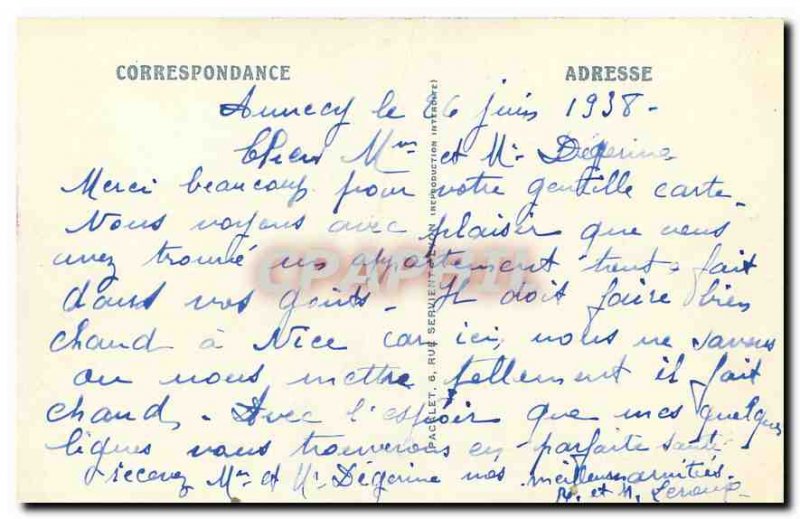 CORRESPONDANCE ADRESSE
Annecy le 26 juin 1938 -
Chers Mme et Mr Dégerine
Merci beaucoup pour votre gentille carte.
Nous voyons avec plaisir que vous
avez trouvé un appartement tout à fait
dans vos goûts. Il doit faire bien
chaud à Nice car ici, nous ne savons
où nous mettre tellement il fait
chaud. Avec l'espoir que mes quelques
lignes vous trouverons en parfaite santé
recevez Mme et Mr Dégerine nos meilleures amitiés.
et M. Leroux
PACELET, 6, RUE SERVIENT - LYON (REPRODUCTION INTERDITE)